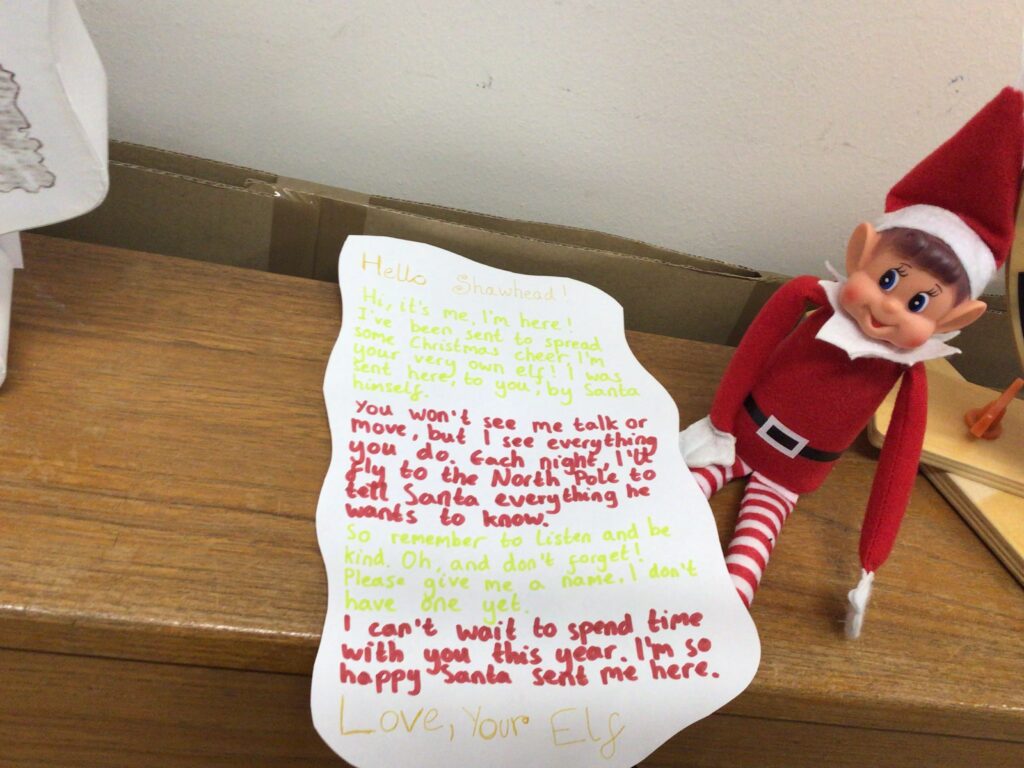 Hello Shawhead!
Hi, it's me, I'm here!
I've been sent to spread
some Christmas cheer I'm
your very own elf! I was
sent here, to you, by Santa
himself.
You won't see me talk or
move, but I see everything
you do. Each night, I'll
fly to the North Pole to
tell Santa everything he
wants to know.
So remember to listen and be
kind. Oh, and don't forget!
Please give me a name, I don't
have one yet.
I can't wait to spend time
with you this year. I'm so
happy Santa sent me here.
Love, Your Elf